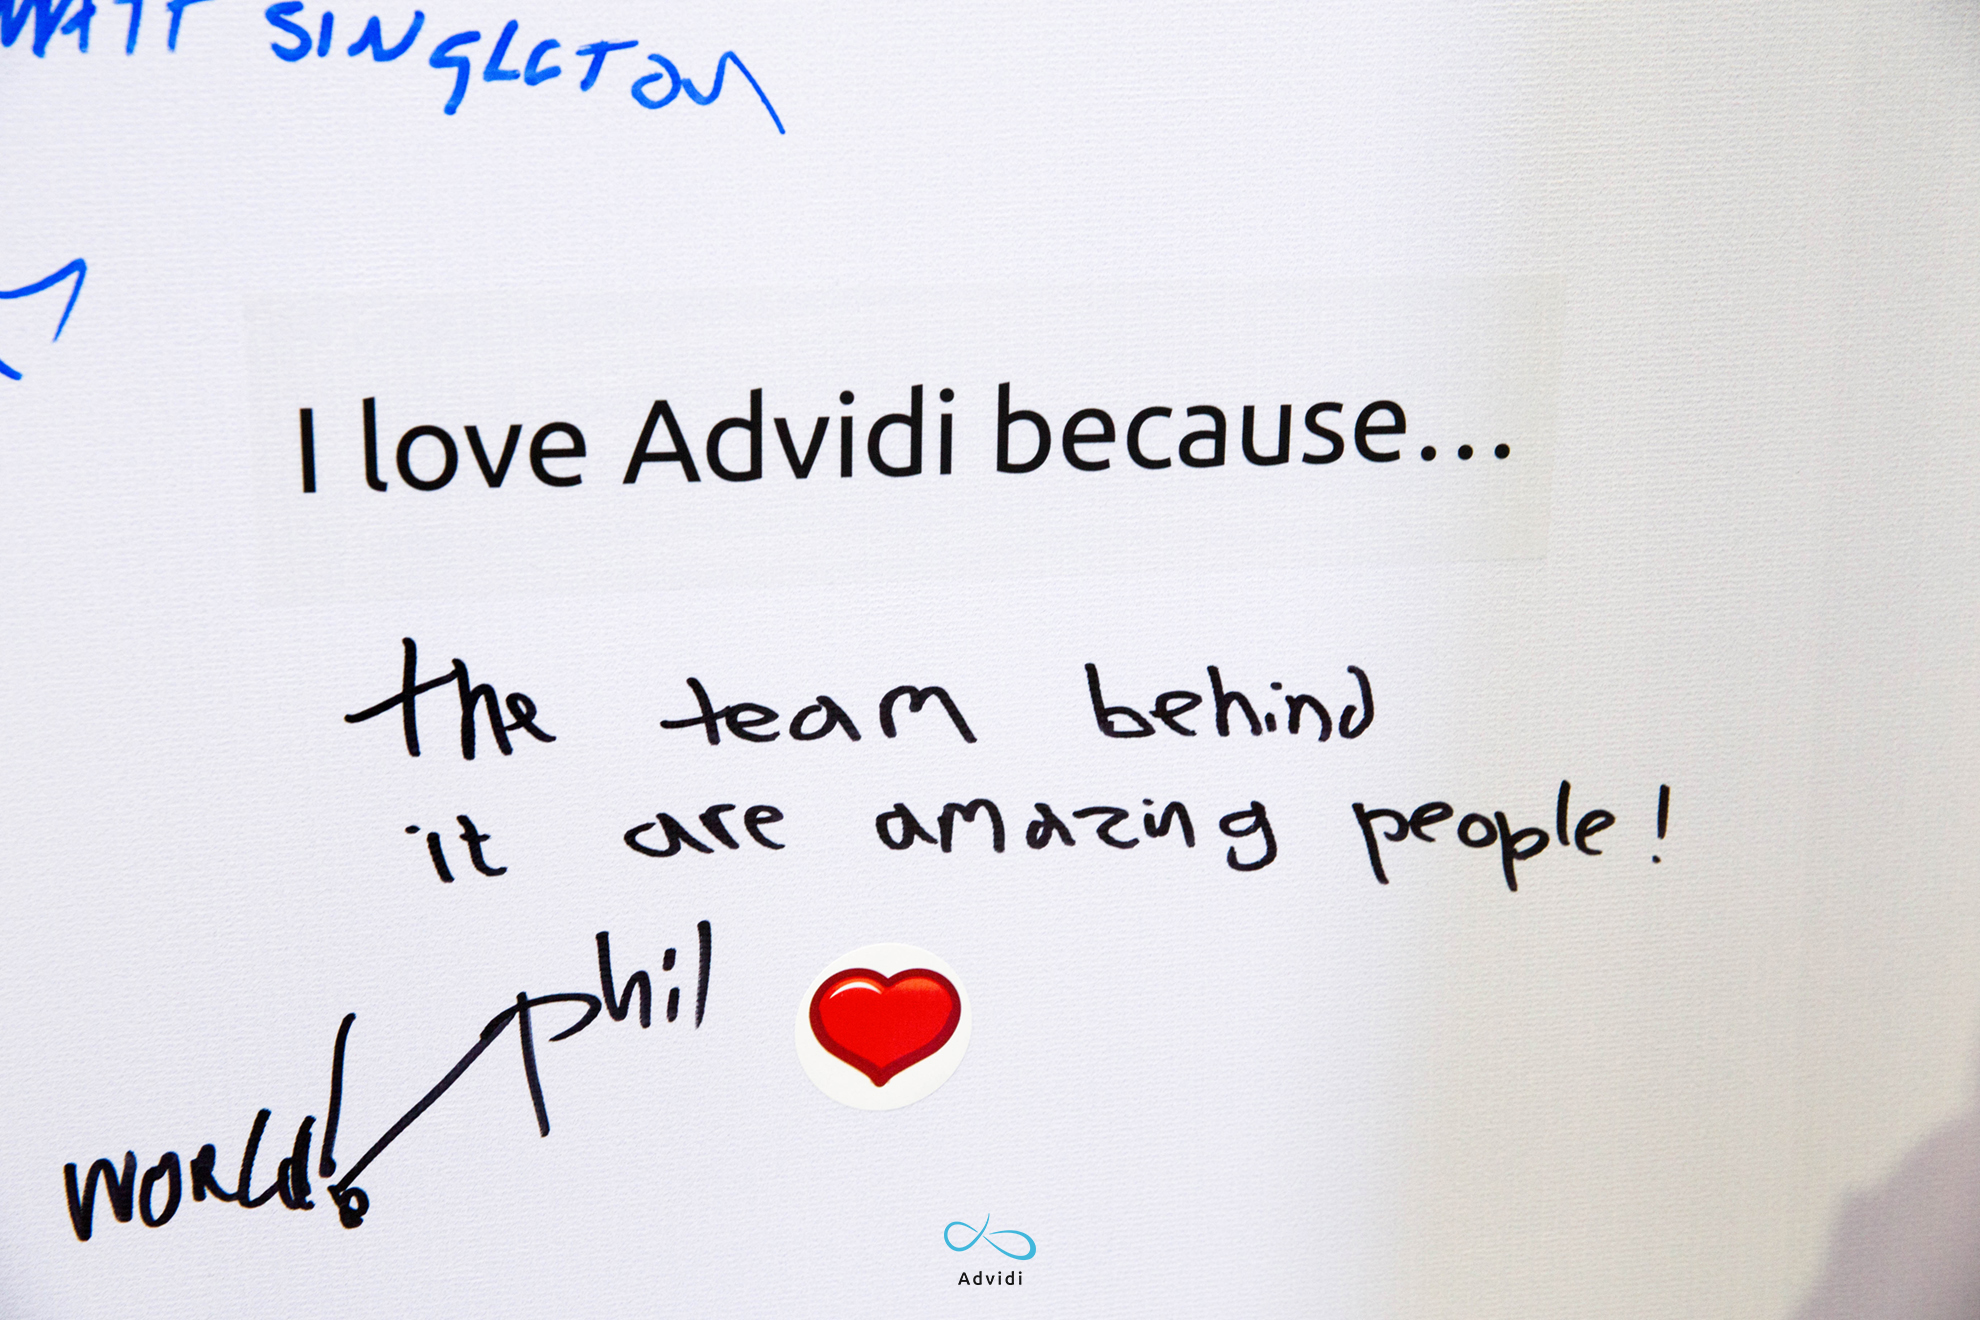 MATT SINGLETON
I love Advidi because...
the team behind
it are amazing people!
phil
WORLd!
Advidi